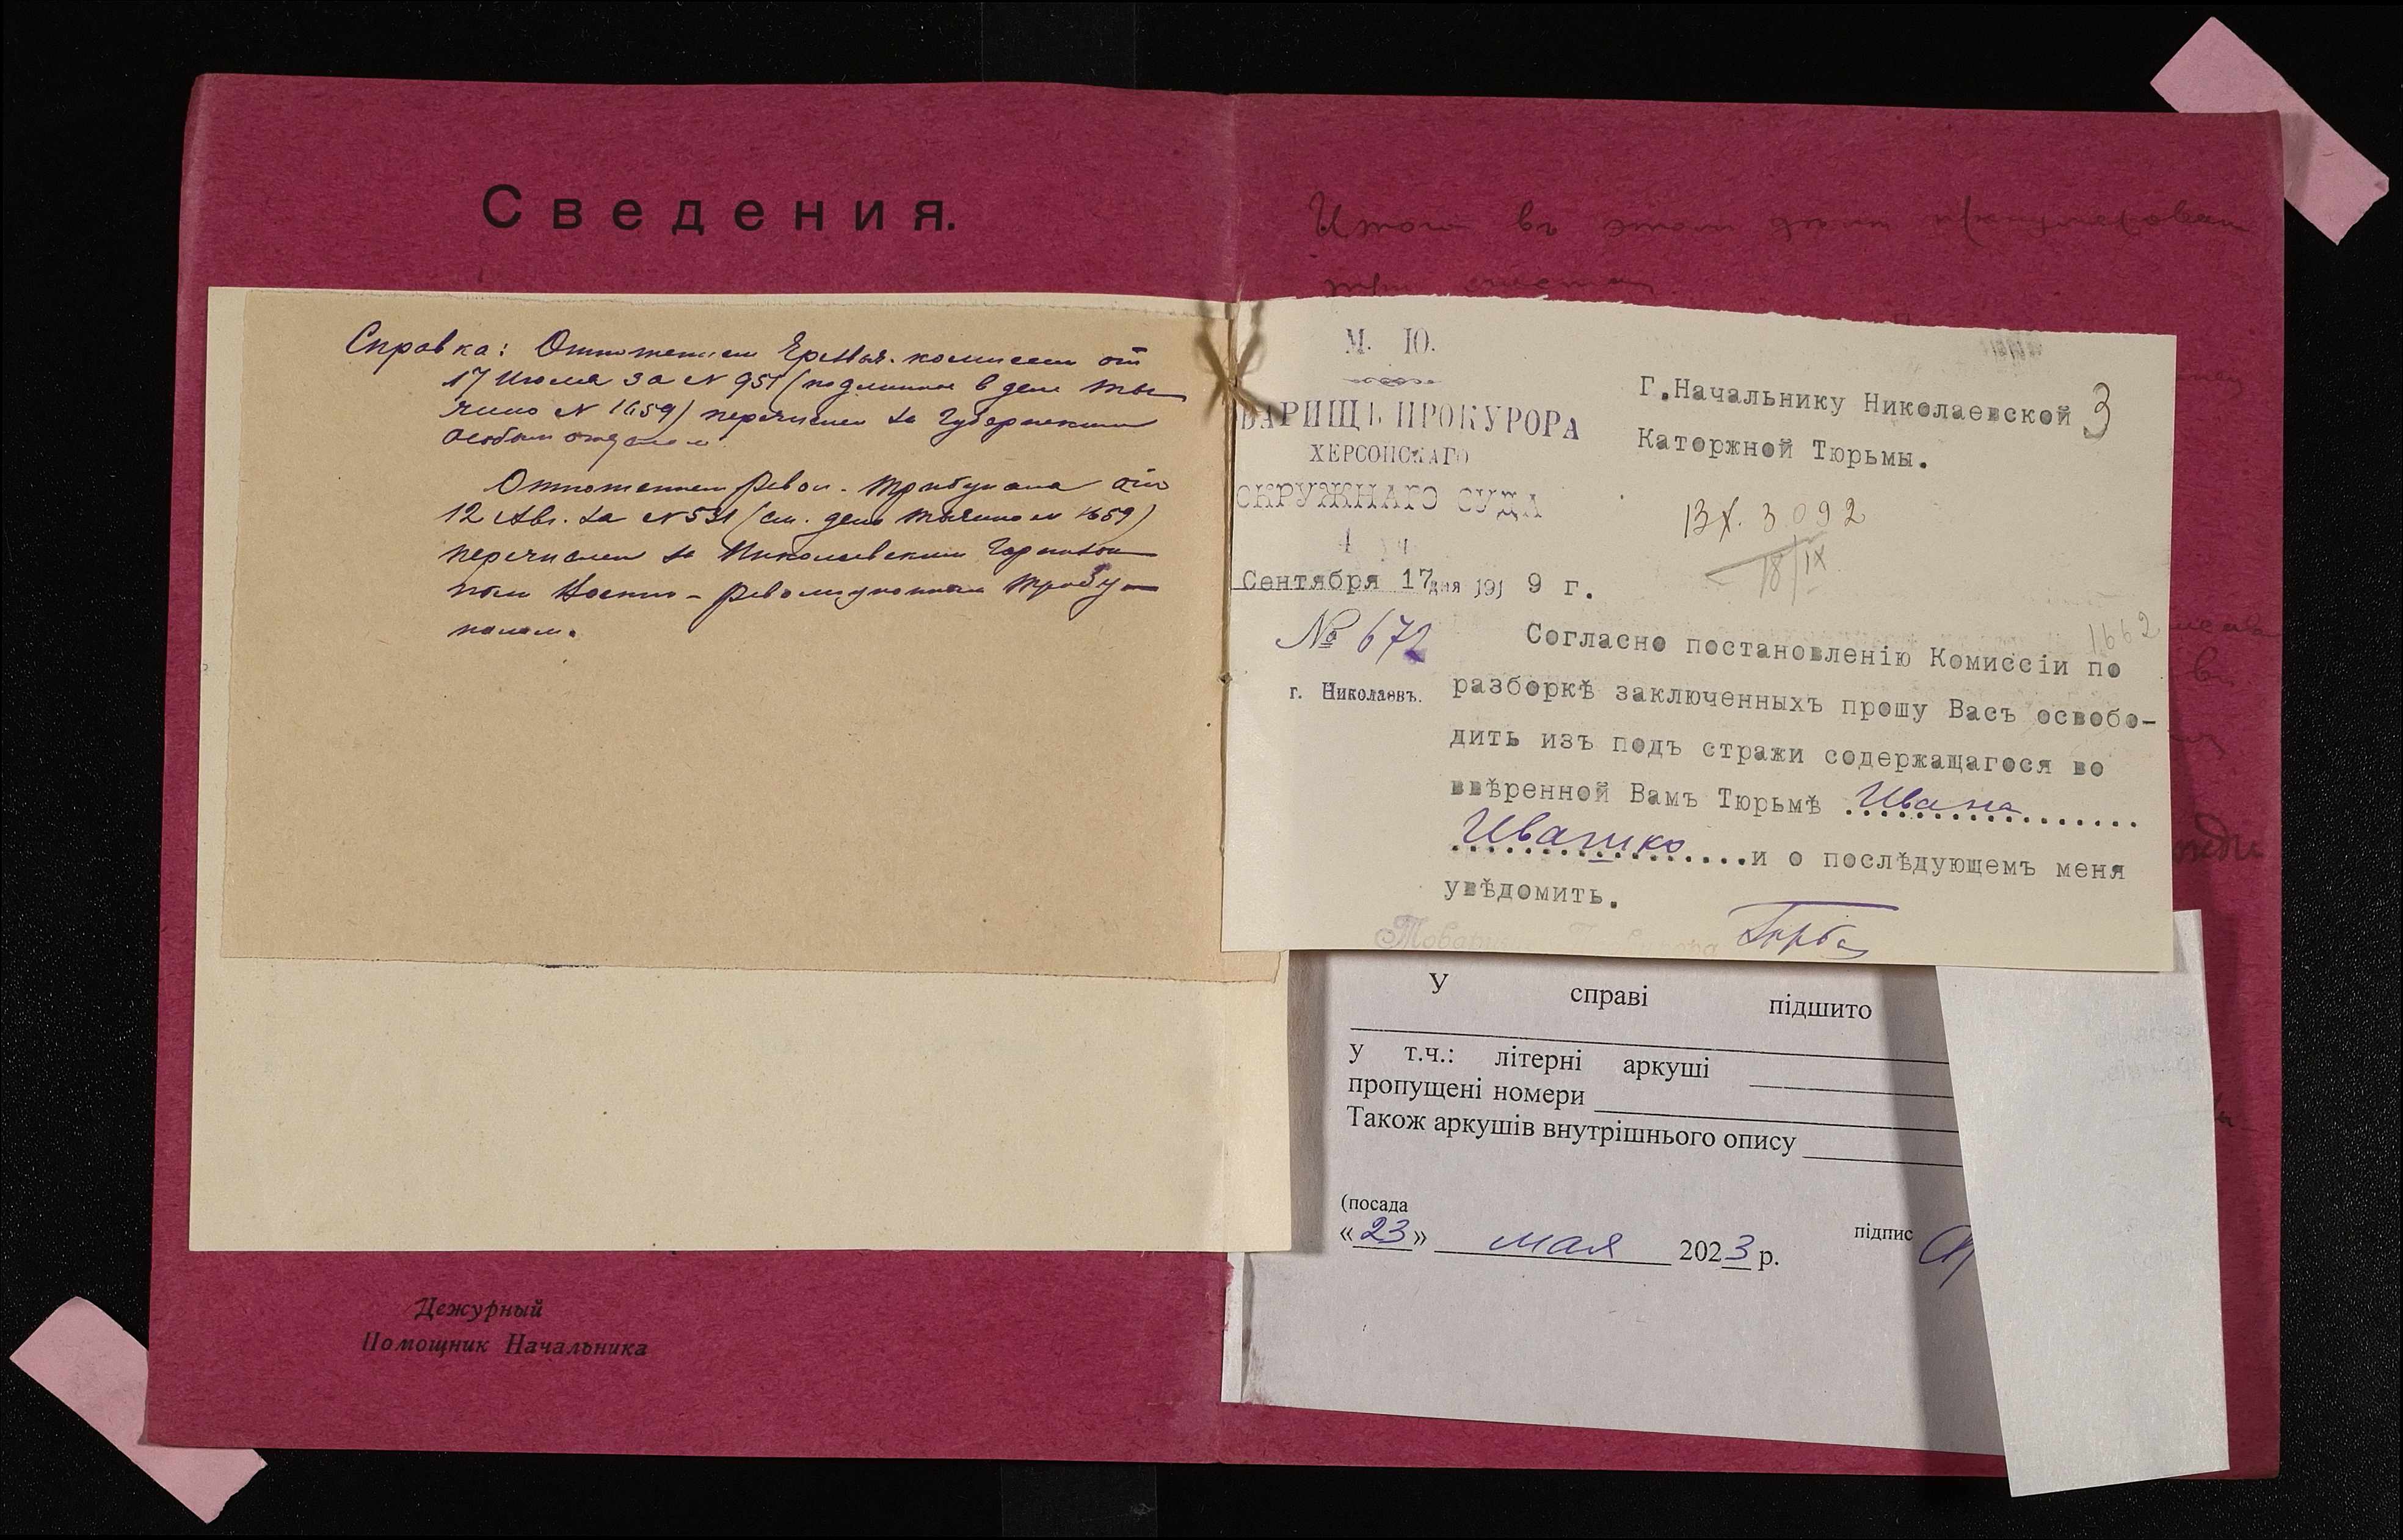 Сведения.
Справка: Отношением Чрезвыч. комиссии от
17 Июля за № 951 (подлинное в деле Ты
чино № 1659) перечислен за Губернским
Особым отделом.
Отношением Револ. Трибунала от
12 Авг. за № 531 (см. дело Тычино № 1659)
перечислен за Николаевским Гарнизон
ным Военно-Революционным Трибу-
налом.
Дежурный
Помощник Начальника
Итого въ этом деле пронумеровано
три листа
М. Ю.
ВАРИЩЪ ПРОКУРОРА
ХЕРСОНСКАГО
ОКРУЖНАГО СУДА
1 уч.
Сентября 17 дня 191 9 г.
№ 672
г. Николаевъ.
Г.Начальнику Николаевской
3
Каторжной Тюрьмы.
ВХ. 3092
18/IX
1662
Согласно постановленію Комиссіи по
разборкѣ заключенныхъ прошу Васъ освобо-
дить изъ подъ стражи содержащагося во
ввѣренной Вамъ Тюрьмѣ Ивана
Ивашко и о послѣдующемъ меня
увѣдомить.
У справі підшито
у т.ч.: літерні аркуші
пропущені номери
Також аркушів внутрішнього опису
(посада
«23» мая 2023 р.
підпис